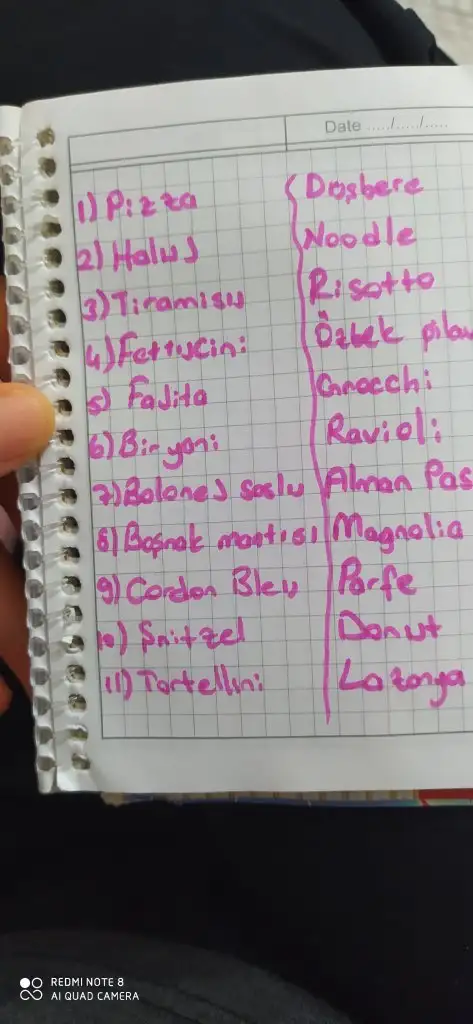 Date ...../...../.....
1) Pizza
2) Haluj
3) Tiramisu
4) Fettucini
5) Fajita
6) Biryani
7) Bolonej soslu
8) Boşnak mantısı
9) Cordon Bleu
10) Şnitzel
11) Tortellini
Doşbere
Noodle
Risotto
Özbek pilav
Gnocchi
Ravioli
Alman Pas
Magnolia
Parfe
Donut
Lazanya
REDMI NOTE 8
AI QUAD CAMERA